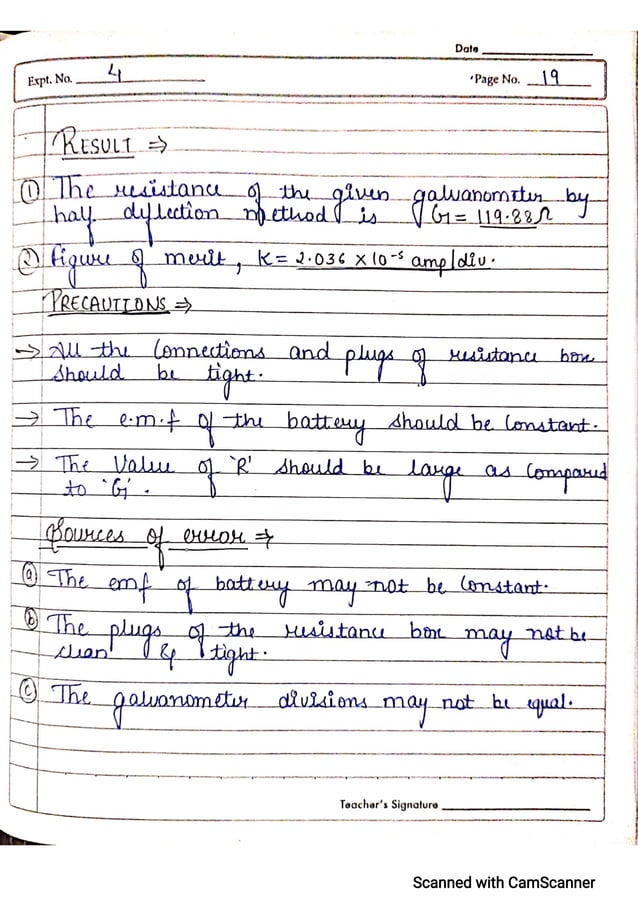 Date
Expt. No. 4
Page No. 19
RESULT ⇒
① The resistance of the given galvanometer by
half deflection method is G = 119.88Ω
② figure of merit, K = 2.036 × 10⁻⁵ amp/div.
PRECAUTIONS ⇒
→ All the Connections and plugs of resistance box
should be tight.
→ The e.m.f of the battery should be Constant.
→ The Value of 'R' should be large as Compared
to 'G'.
Sources of error ⇒
ⓐ The emf of battery may not be Constant.
ⓑ The plugs of the resistance box may not be
clean & tight.
ⓒ The galvanometer divisions may not be equal.
Teacher's Signature
Scanned with CamScanner